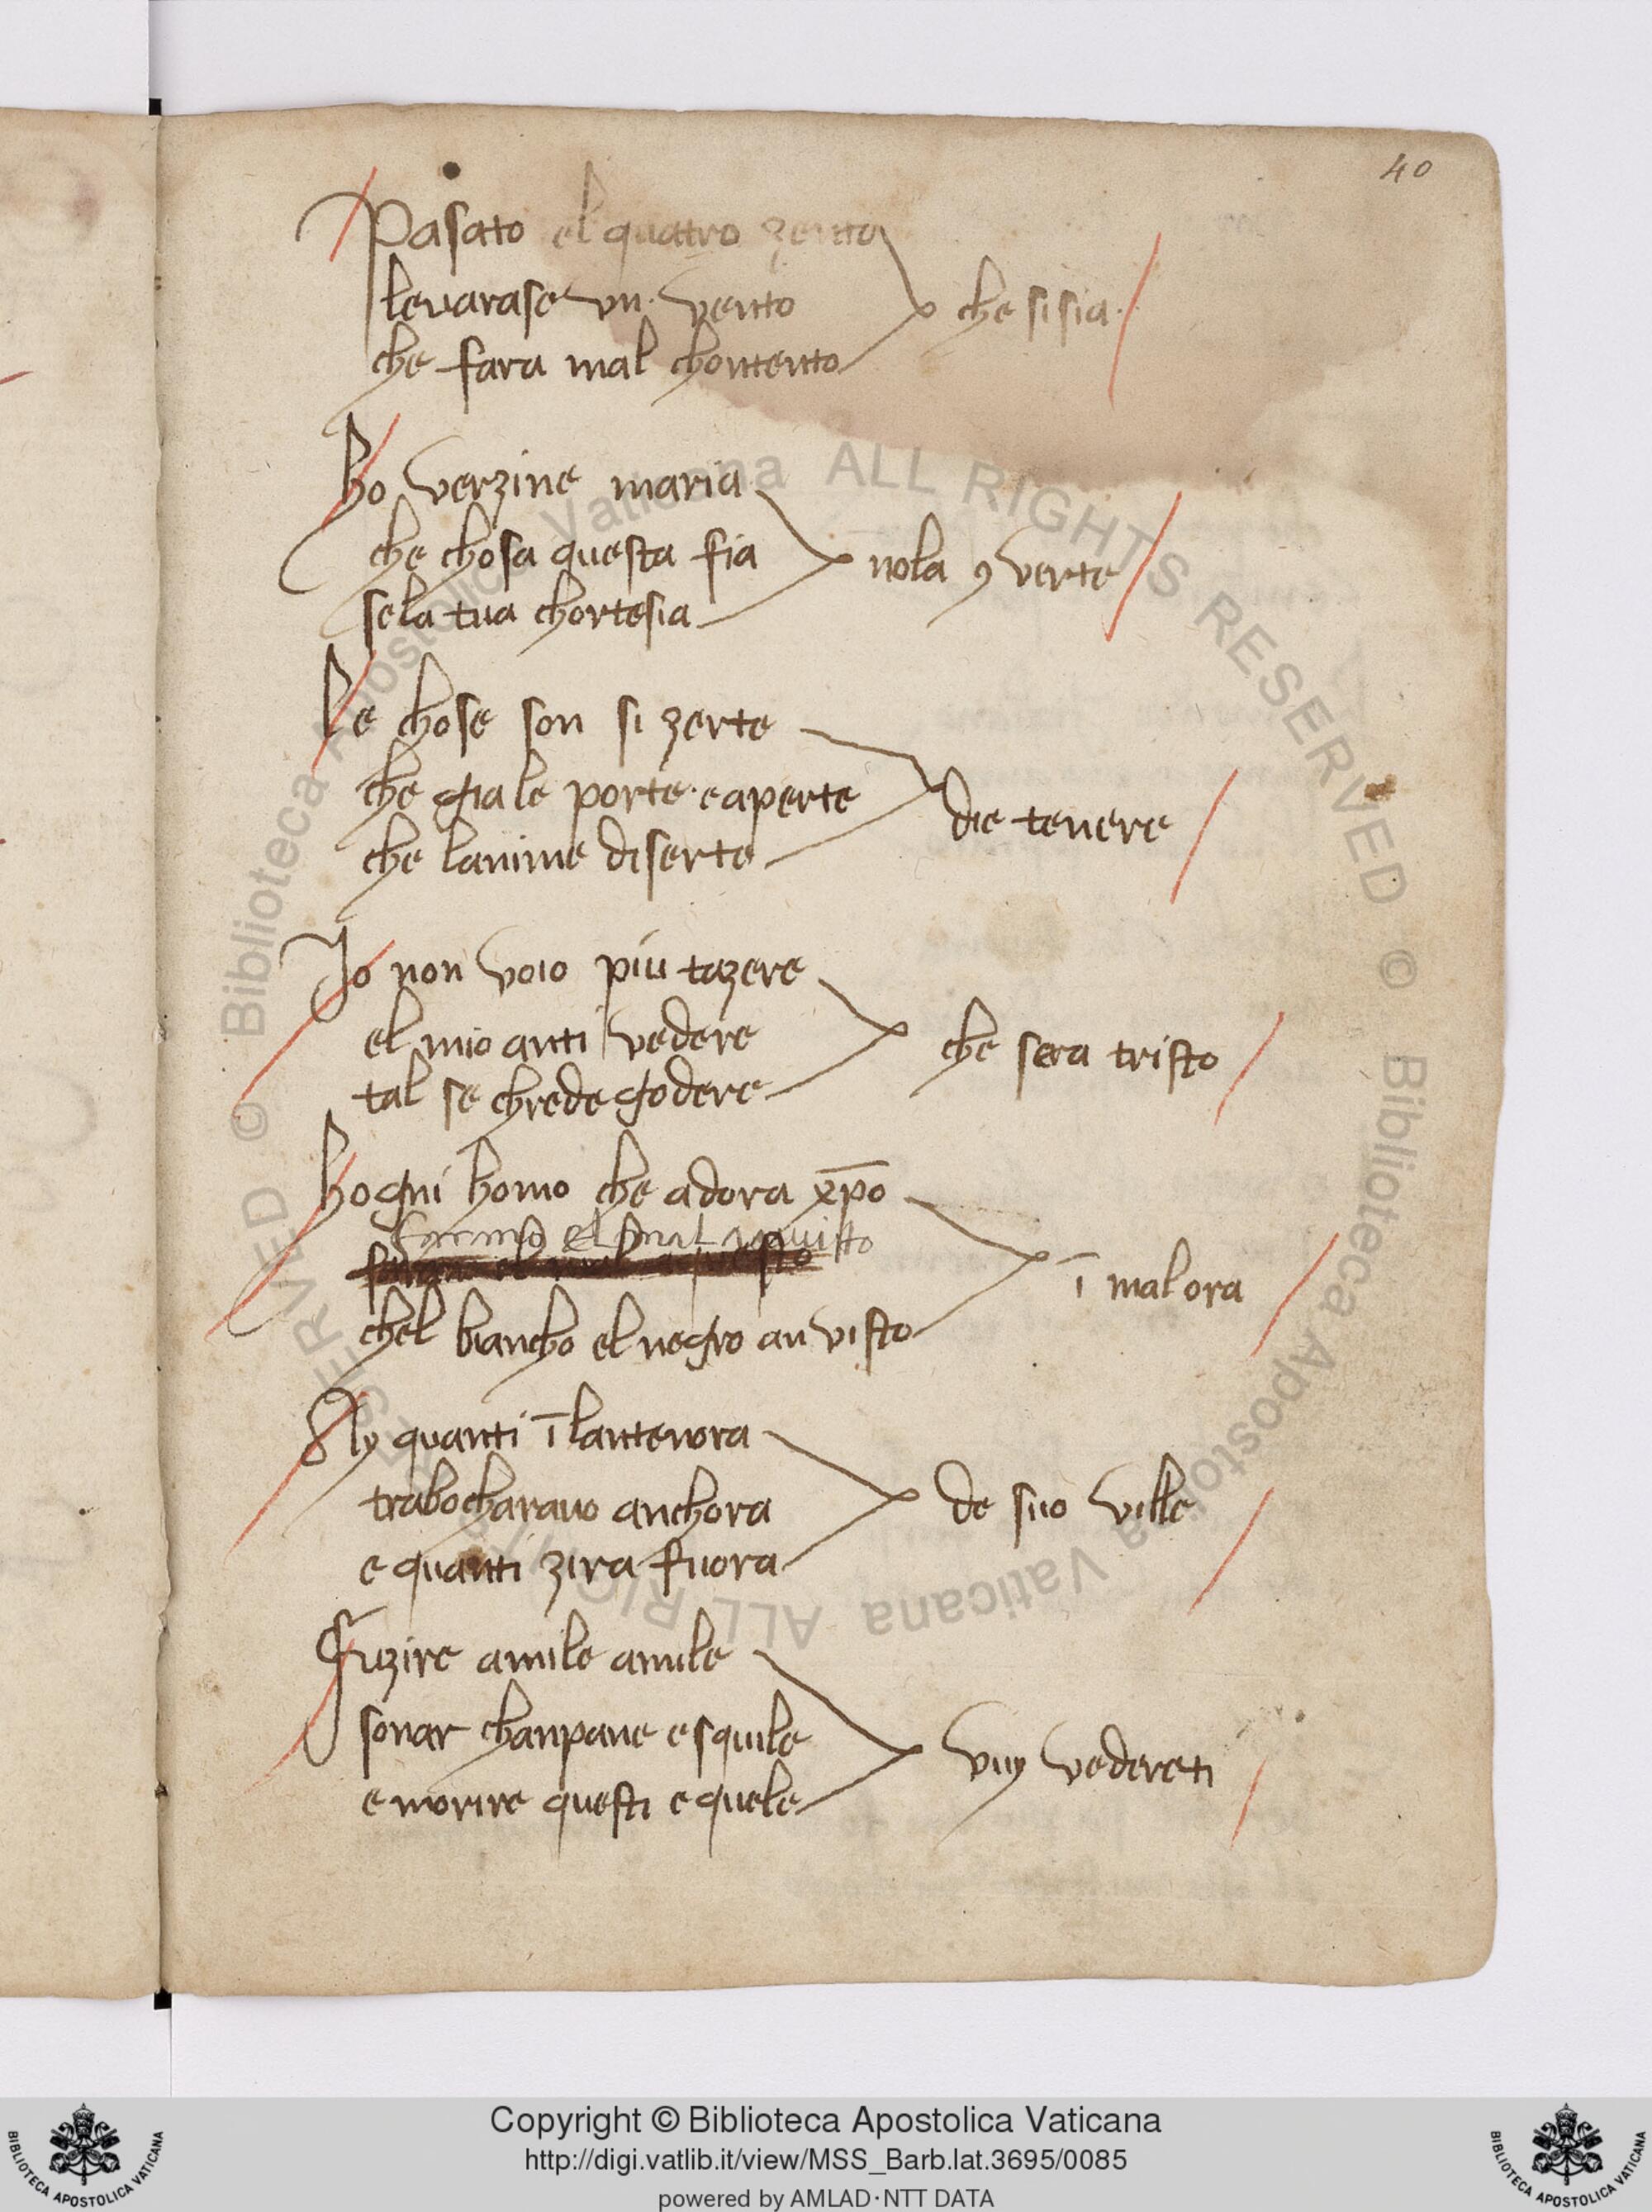 40
Pasato el quatro zento
levarase vn. vento
che fara mal chontento
che si sia.
ho verzine maria
che chosa questa fia
se la tua chortesia
nola ꝯverte
Le chose son si zerte
che gia le porte. e aperte
che lanime diserte
die tenere
Io non voio piu tazere
el mio anti vedere
tal se chrede godere
che sera tristo
hogni homo che adora xp̄o
el mal
chel biancho el negro an visto
ī mal ora
Ay quanti ī lantenora
trabocharano anchora
e quanti zira fuora
de suo ville
Fuzire amile amile
sonar chanpane e squile
e morire questi e quele
vuy vedereti
© Biblioteca Apostolica Vaticana ALL RIGHTS RESERVED © Biblioteca Apostolica Vaticana ALL RIGHTS RESERVED
BIBLIOTECA APOSTOLICA VATICANA
Copyright © Biblioteca Apostolica Vaticana
http://digi.vatlib.it/view/MSS_Barb.lat.3695/0085
powered by AMLAD·NTT DATA
BIBLIOTECA APOSTOLICA VATICANA